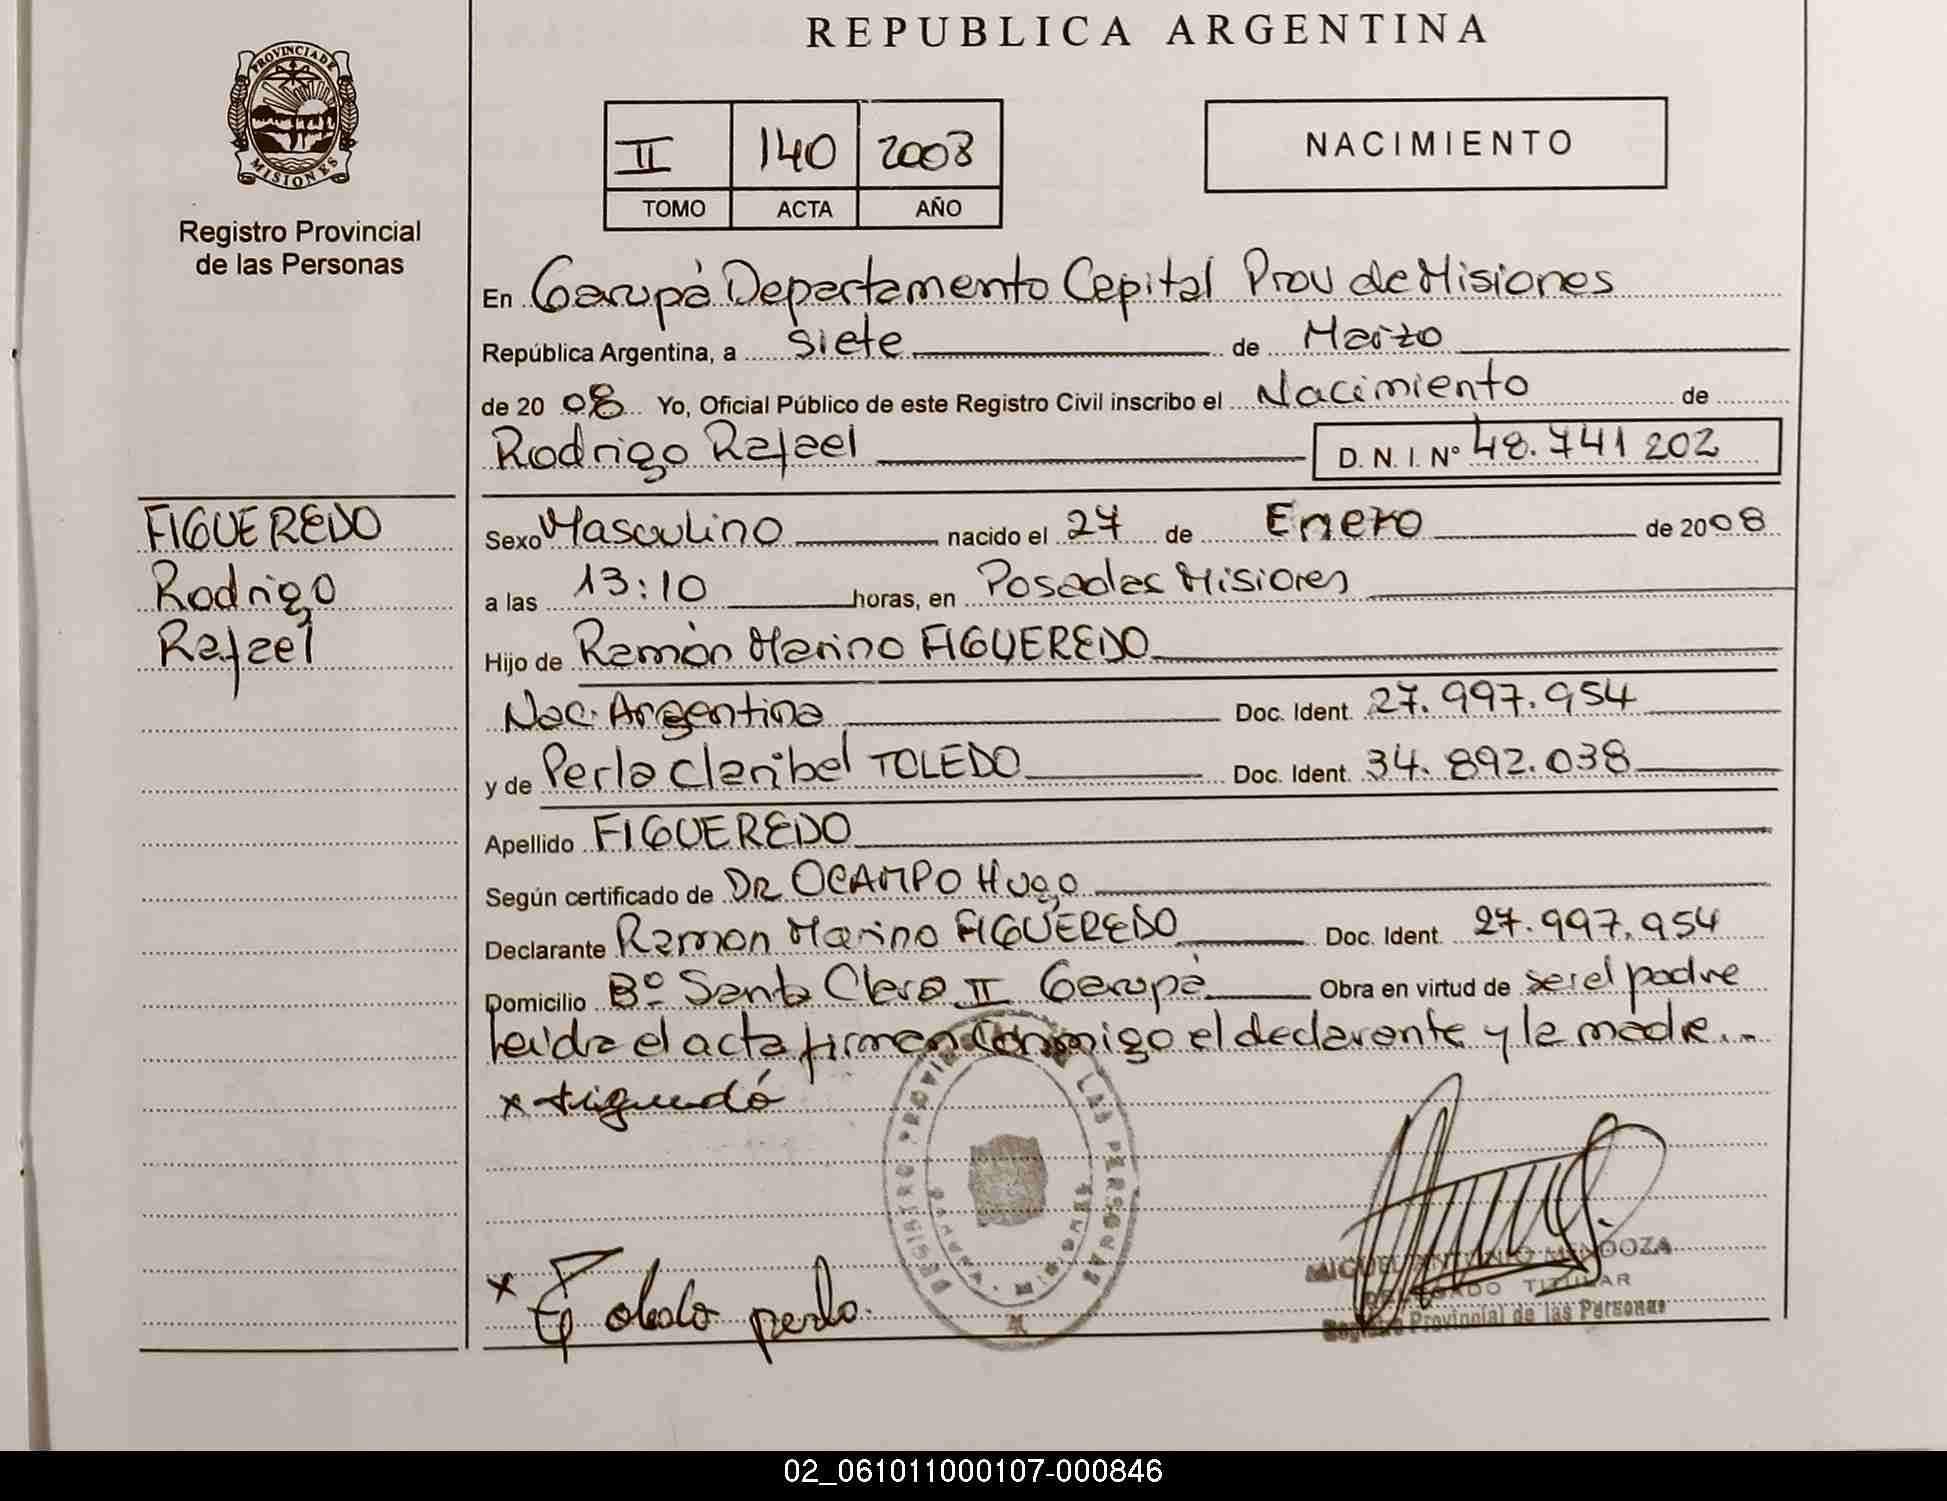 REPUBLICA ARGENTINA
PROVINCIA DE MISIONES
Registro Provincial
de las Personas
II 140 2008
TOMO ACTA AÑO
NACIMIENTO
En Garupá Departamento Capital Prov de Misiones
República Argentina, a siete de Marzo
de 2008 Yo, Oficial Público de este Registro Civil inscribo el Nacimiento de
Rodrigo Rafael D. N. I. Nº 48.741 202
FIGUEREDO
Rodrigo
Rafael
Sexo Masculino nacido el 27 de Enero de 2008
a las 13:10 horas, en Posadas Misiones
Hijo de Ramón Marino FIGUEREDO
Nac. Argentina Doc. Ident. 27.997.954
y de Perla Claribel TOLEDO Doc. Ident. 34.892.038
Apellido FIGUEREDO
Según certificado de DR OCAMPO Hugo
Declarante Ramon Marino FIGUEREDO Doc. Ident. 27.997.954
Domicilio Bº Santa Clara II Garupá Obra en virtud de ser el padre
leida el acta firman conmigo el declarante y la madre...
REGISTRO PROVINCIAL DE LAS PERSONAS
MISIONES
x
x perla
MIGUEL ANTONIO MENDOZA
DELEGADO TITULAR
Registro Provincial de las Personas
02_061011000107-000846